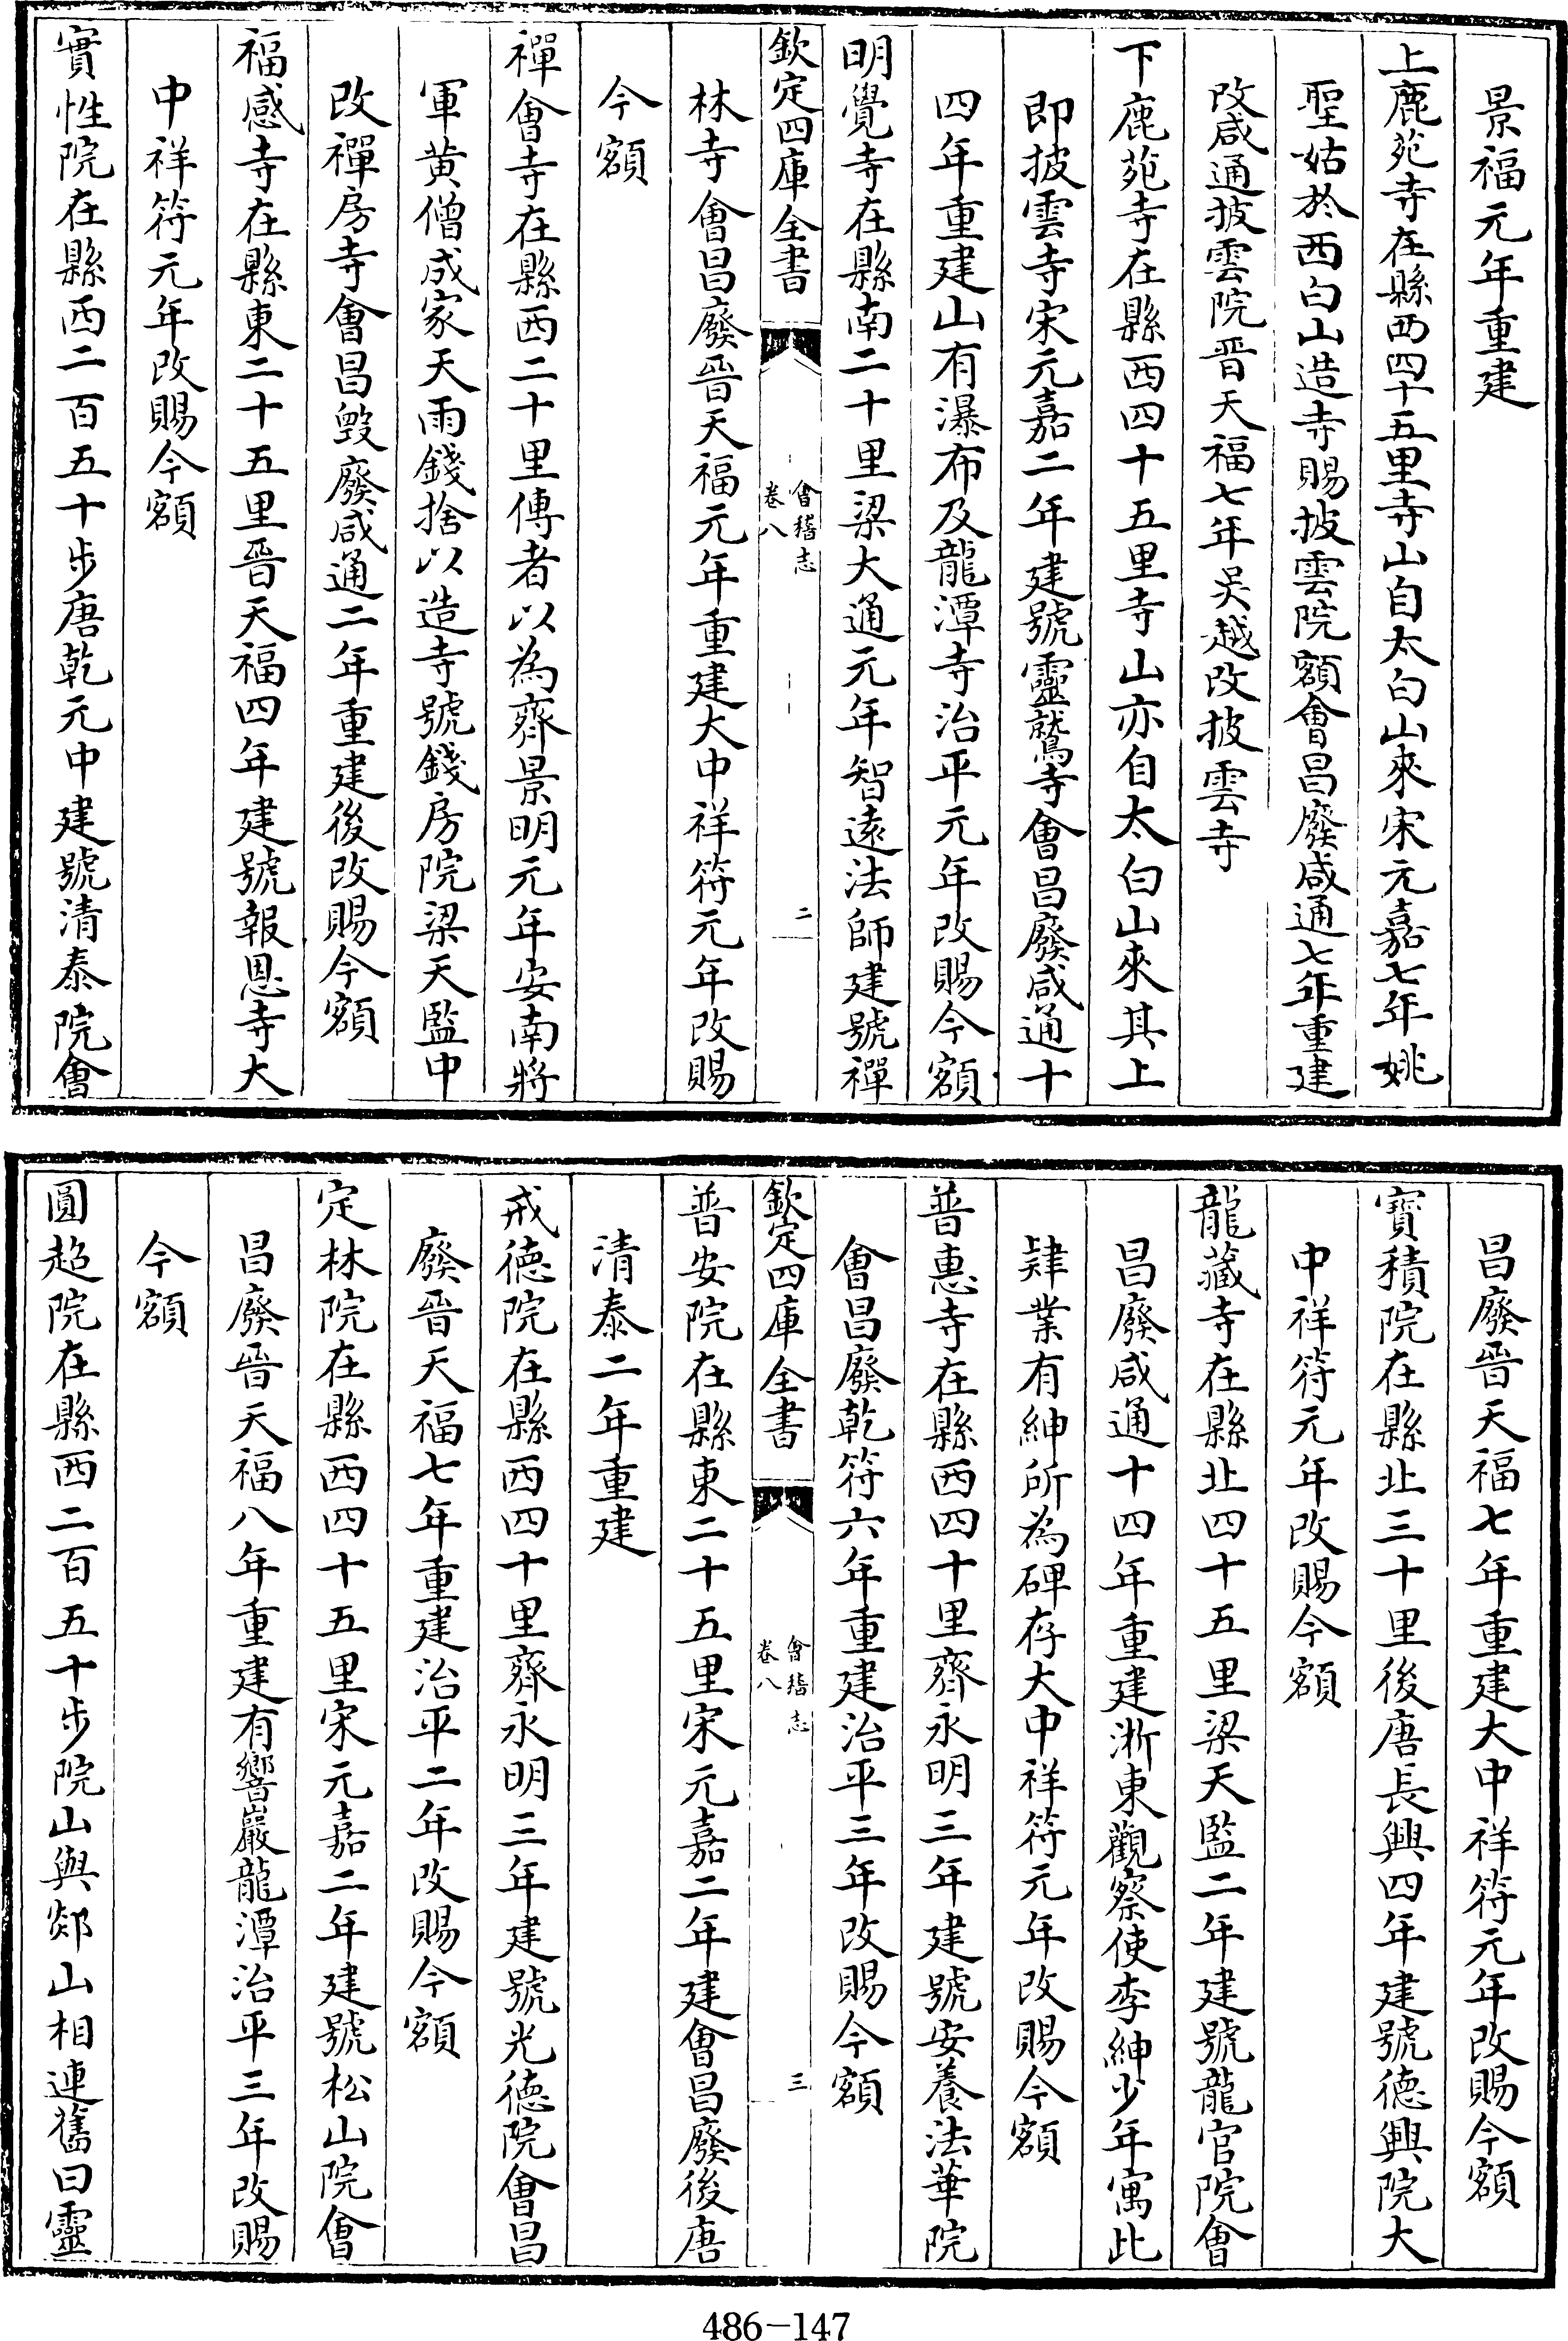 景福元年重建
上鹿苑寺在縣西四十五里寺山自太白山來宋元嘉七年姚
聖姑於西白山造寺賜披雲院額會昌廢咸通七年重建
改咸通披雲院晉天福七年吳越改披雲寺
下鹿苑寺在縣西四十五里寺山亦自太白山來其上
即披雲寺宋元嘉二年建號靈鷲寺會昌廢咸通十
四年重建山有瀑布及龍潭寺治平元年改賜今額
明覺寺在縣南二十里梁大通元年智遠法師建號禪
欽定四庫全書
會稽志
卷八
二
林寺會昌廢晉天福元年重建大中祥符元年改賜
今額
禪會寺在縣西二十里傳者以為齊景明元年安南將
軍黄僧成家天雨錢捨以造寺號錢房院梁天監中
改禪房寺會昌毀廢咸通二年重建後改賜今額
福感寺在縣東二十五里晉天福四年建號報恩寺大
中祥符元年改賜今額
實性院在縣西二百五十步唐乾元中建號清泰院會
昌廢晉天福七年重建大中祥符元年改賜今額
寶積院在縣北三十里後唐長興四年建號德興院大
中祥符元年改賜今額
龍藏寺在縣北四十五里梁天監二年建號龍宫院會
昌廢咸通十四年重建浙東觀察使李紳少年寓此
肄業有紳所為碑存大中祥符元年改賜今額
普惠寺在縣西四十里齊永明三年建號安養法華院
會昌廢乾符六年重建治平三年改賜今額
欽定四庫全書
會稽志
卷八
三
普安院在縣東二十五里宋元嘉二年建會昌廢後唐
清泰二年重建
戒德院在縣西四十里齊永明三年建號光德院會昌
廢晉天福七年重建治平二年改賜今額
定林院在縣西四十五里宋元嘉二年建號松山院會
昌廢晉天福八年重建有響巖龍潭治平三年改賜
今額
圓超院在縣西二百五十步院山與郯山相連舊曰靈
486-147